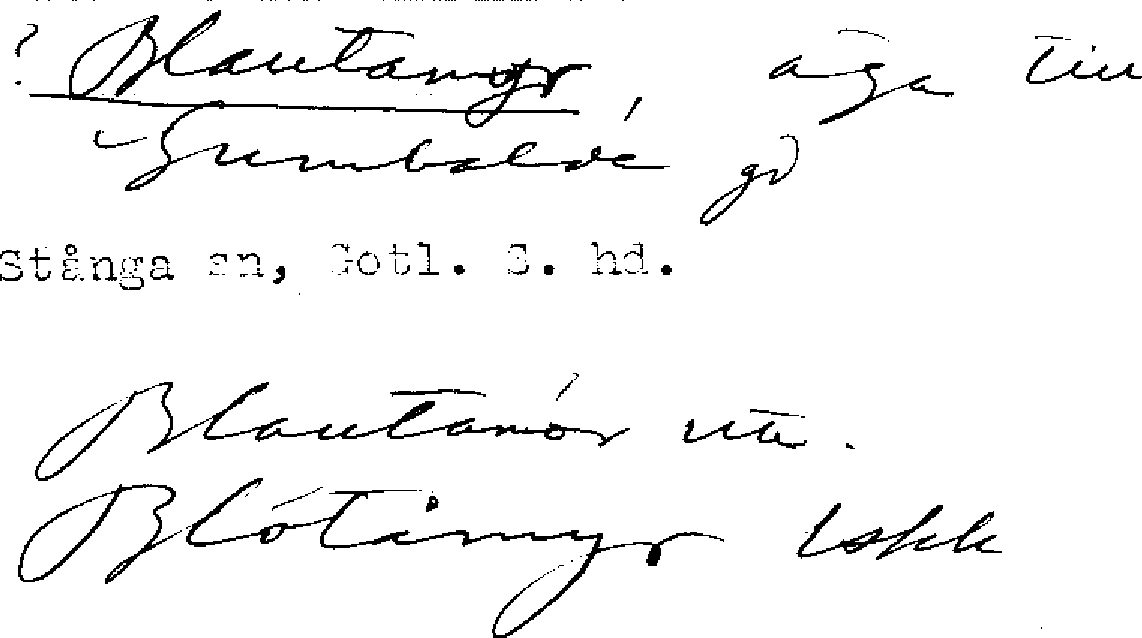 ? Blautamyr, äga till
Gumbalde gd
Stånga sn, Gotl. S. hd.
Blautamör uta.
Blötåmyr lskk